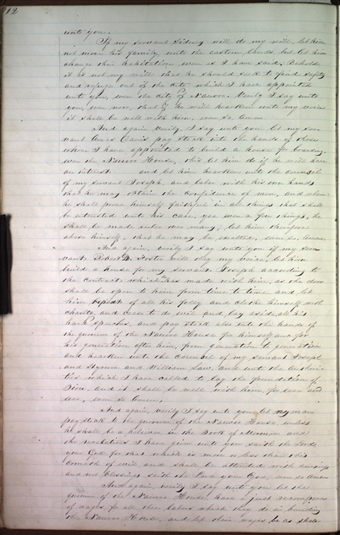 12
unto you.
If my servant Sidney will do my will, let him
not move his family unto the eastern lands but let him
change their habitation, even as I have said. Behold,
it is not my will that he should seek to find safety
and refuge out of the city which I have appointed
unto you, even the city of Nauvoo. Verily I say unto
you, even now, if he will hearken unto my voice
it shall be well with him, even so, Amen.
And again Verily I say unto you let my ser
vant Amos Davis pay stock into the hands of those
whom I have appointed to build a house for boarding
even the Nauvoo House, this let him do if he will have
an interest and let him hearken unto the counsel
of my servant Joseph, and labor with his own hands
that he may obtain the confidence of men, and when
he shall prove himself faithful in all things that shall
be entrusted unto his care, yea even a few things, he
shall be made ruler over many; let him therefore
abase himself that he may be exalted, even so, Amen
And again, verily I say unto you if my ser
vant Robert D. Foster will obey my voice, let him
build a house for my servant Joseph according to
the contract which he has made with him, as the door
shall be open to him from time to time and let
him repent of all his folly and clothe himself with
charity, and cease to do evil and lay aside all his
hard speeches, and pay stock also into the hands of
the quorum of the Nauvoo House for himself and for
his generation after him, from generation to generation
and hearken unto the counsel of my servant Joseph
and Hyrum and William Law, and unto the authori
ties which I have called to lay the foundation of
Zion, and it shall be well with him for ever and
ever, even so Amen.
And again, verily I say unto you, let no man
pay stock to the quorum of the Nauvoo House unless
he shall be a believer in the Book of Mormon and
the revelations I have given unto you, saith the Lord
your God for that which is more or less than this
cometh of evil and shall be attended with cursings
and not blessings, saith the Lord your God, even so Amen
And again, verily I say unto you, let the
quorum of the Nauvoo House have a just recompense
of wages for all their labors which they do in building
the Nauvoo House, and let their wages be as shall